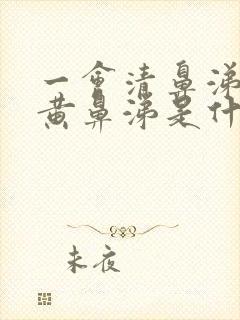 一会清鼻涕
黄鼻涕是什
未夜